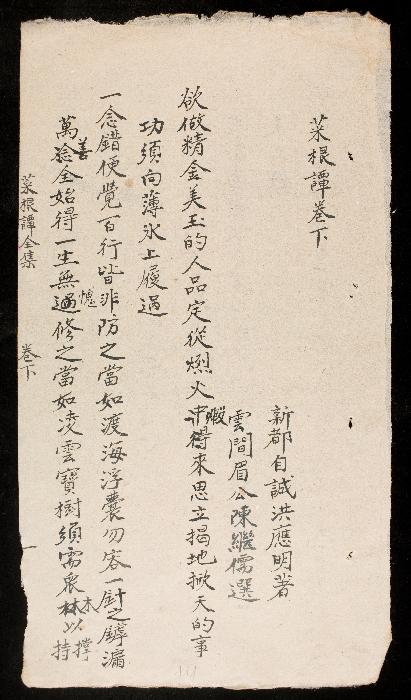 菜根譚卷下
新都自誠洪應明著
雲間眉公陳繼儒選
欲做精金美玉的人品定從烈火中煅得來思立揭地掀天的事
功須向薄氷上履過
一念錯便覺百行皆非防之當如渡海浮囊勿容一針之罅漏
萬善全始得一生無愧修之當如凌雲寶樹須需衆木以撐持
菜根譚全集 卷下 一